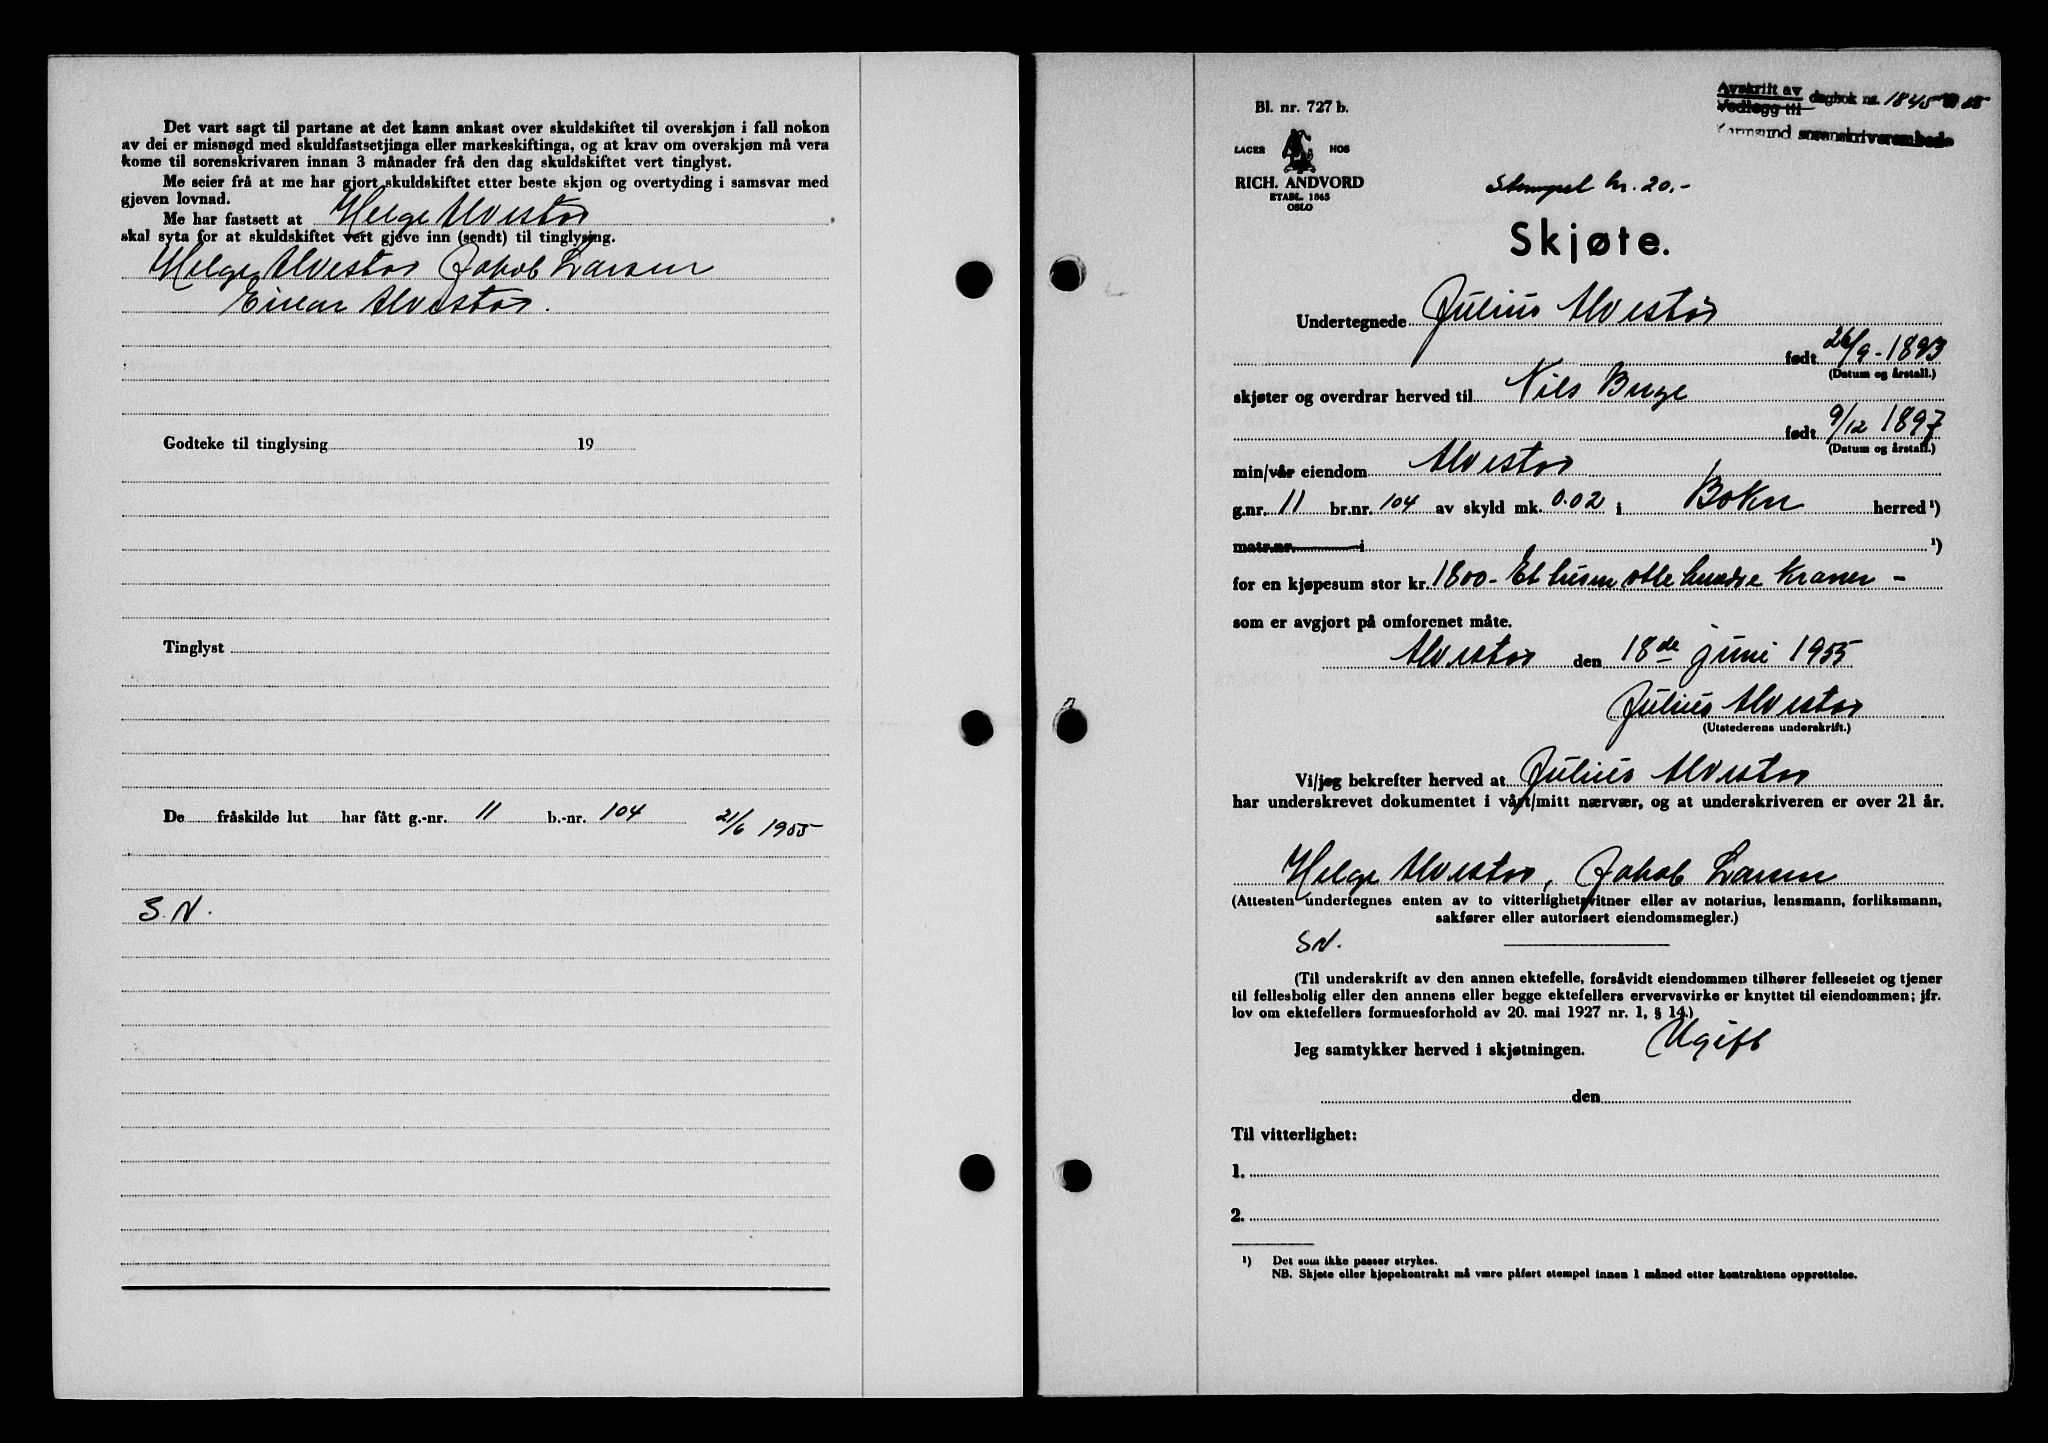 Det vart sagt til partane at det kann ankast over skuldskiftet til overskjøn i fall nokon
av dei er misnøgd med skuldfastsetjinga eller markeskiftinga, og at krav om overskjøn må vera
kome til sorenskrivaren innan 3 månader frå den dag skuldskiftet vert tinglyst.
Me seier frå at me har gjort skuldskiftet etter beste skjøn og overtyding i samsvar med
gjeven lovnad.
Me har fastsett at Helge Alvestad
skal syta for at skuldskiftet vert gjeve inn (sendt) til tinglysing.
Helge Alvestad Jakob Larsen
Einar Alvestad.
Godteke til tinglysing 19
Tinglyst
De fråskilde lut har fått g.-nr. 11 b.-nr. 104 21/6 1955
S.N.
Avskrift av
Vedlegg til dagbok nr. 1845
Karmsund sorenskriverembede
Bl. nr. 727 b.
LAGER HOS
RICH. ANDVORD
ETABL. 1865
OSLO
Stempel kr. 20.-
Skjøte.
Undertegnede Julius Alvestad
født 26/9-1893
(Datum og årstall.)
skjøter og overdrar herved til Nils Berge
født 9/12 1897
(Datum og årstall.)
min/vår eiendom Alvestad
g.nr. 11 br.nr. 104 av skyld mk. 0.02 i Bokn herred ¹)
matr.nr. i ¹)
for en kjøpesum stor kr. 1800- Et tusen otte hundre Kroner -
som er avgjort på omforenet måte.
Alvestad den 18de juni 1955
Julius Alvestad
(Utstederens underskrift.)
Vi/jeg bekrefter herved at Julius Alvestad
har underskrevet dokumentet i vårt/mitt nærvær, og at underskriveren er over 21 år.
Helge Alvestad, Jakob Larsen
(Attesten undertegnes enten av to vitterlighetsvitner eller av notarius, lensmann, forliksmann,
sakfører eller autorisert eiendomsmegler.)
SN.
(Til underskrift av den annen ektefelle, forsåvidt eiendommen tilhører felleseiet og tjener
til fellesbolig eller den annens eller begge ektefellers ervervsvirke er knyttet til eiendommen; jfr.
lov om ektefellers formuesforhold av 20. mai 1927 nr. 1, § 14.)
Jeg samtykker herved i skjøtningen. Ugift
den
Til vitterlighet:
1.
2.
¹) Det som ikke passer strykes.
NB. Skjøte eller kjøpekontrakt må være påført stempel innen 1 måned etter kontraktens opprettelse.